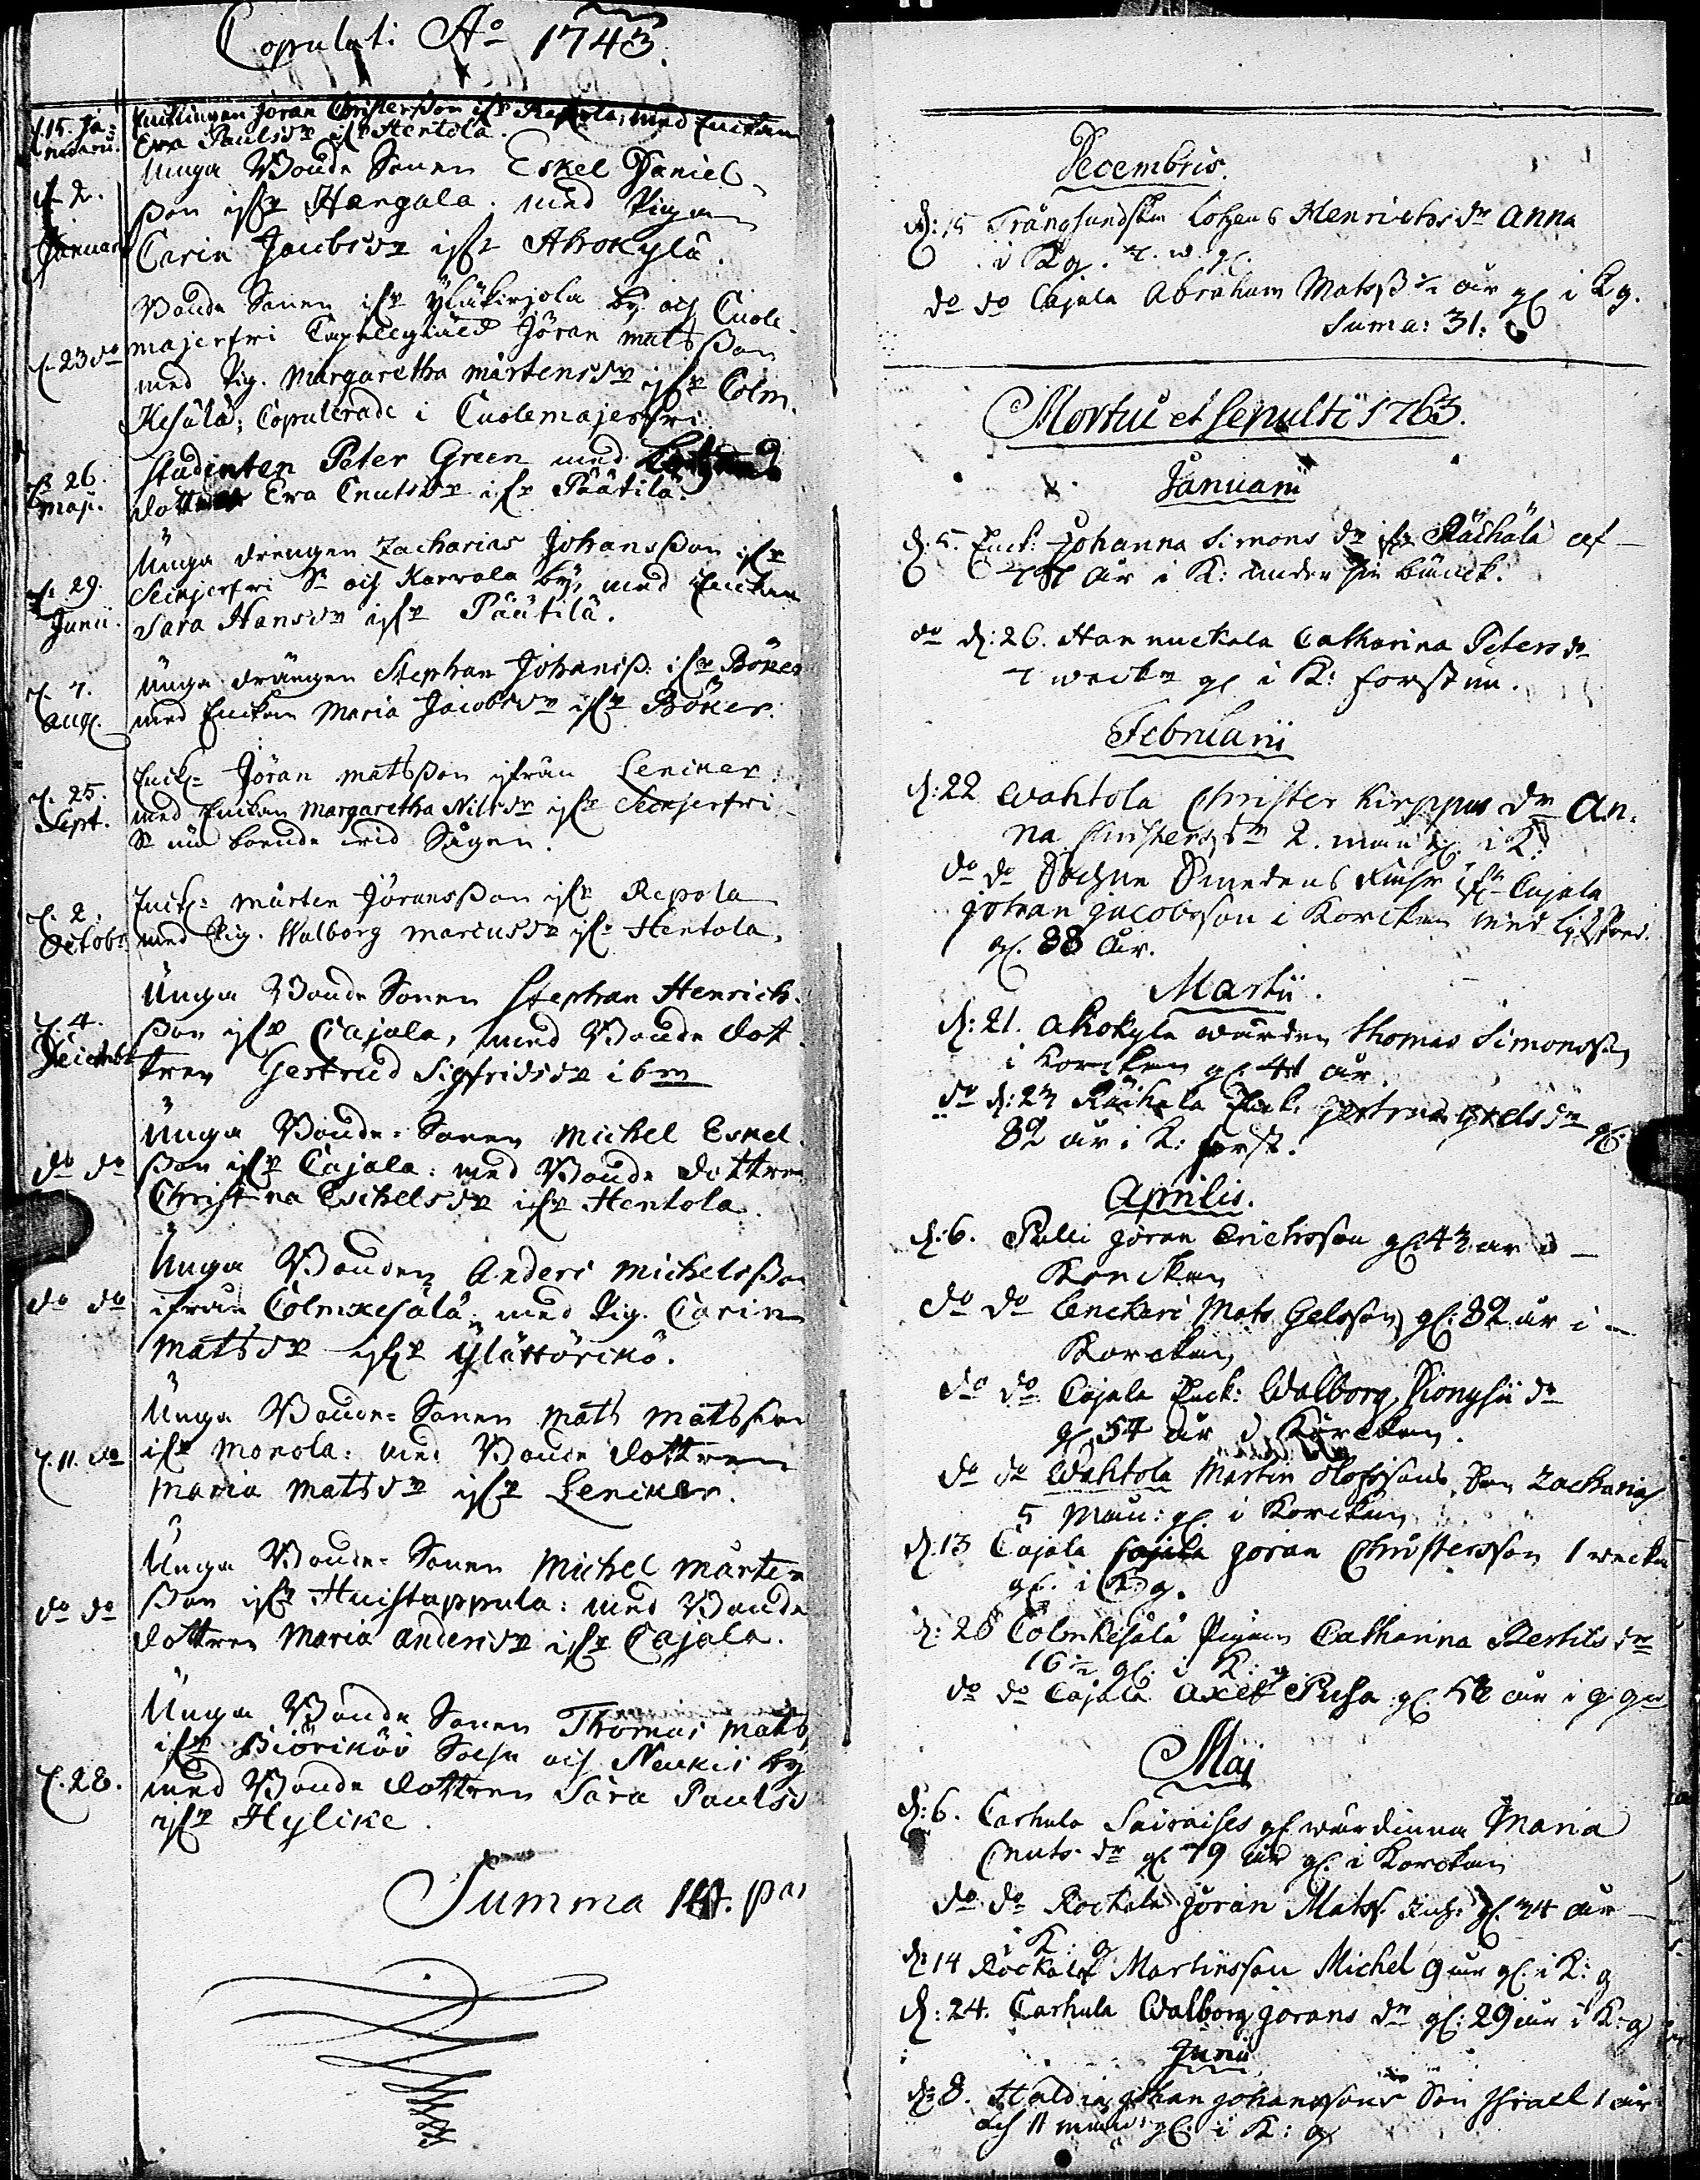 Copulati Ao 1743.
d. 15. Ja=
nuarii.
Enklingen Jöran Christersson ifr Repola, med Enckan
Eva Paulsdr ifr Hentola.
d. 2.
Januarii
Unga Bonde Sonen Eskel Daniel-
sson ifr Hangala. med Pigan
Carin Jacobsdr ifr Ahokylä.
d. 23 do
Bonde Sonen ifr Yläkirjola by och Cuole-
majerfvi Capellgiäld Jöran Matsson
med Pig. Margaretha Mårtensdr ifr Colm-
kesälä; Copulerade i Cuolemajerfvi.
d. 26.
Maji.
Studenten Peter Green med
dottren Eva Cnutsdr ifr Päätilä.
d. 29.
Junii.
Unga drengen Zacharias Johansson ifr
Seckjerfvi Sn och Karvala by, med Enckan
Sara Hansdr ifr Päätilä.
d. 7.
Aug.
Unga drängen Stephan Johanss. ifr Böker
med Enckan Maria Jacobsdr ifr Böker.
d. 25.
Sept.
Enckl= Jöran Matsson ifrån Leniker.
med Enckan Margaretha Nilsdr ifr Seckjerfvi
Sn nu boende wid Sågen.
d. 2.
Octobr.
Enckl= Mårten Jöransson ifr Repola
med Pig. Walborg Marcusdr ifr Hentola.
d. 4.
Decembr
Unga Bonde Sonen Stephan Henrich-
sson ifr Cajala, med Bonde dot-
tren Gertrud Sigfridsdr ibm
do do
Unga Bonde=Sonen Michel Eskel-
sson ifr Cajala: med Bonde dottren
Christina Eschelsdr ifr Hentola.
do do
Unga Bonden Anders Michelsson
ifrån Colmkesälä, med Pig. Carin
Matsdr ifr
d. 11. do
Unga Bonde=Sonen Mats Matsson
ifr Monola: med Bonde dottren
Maria Matsdr ifr Leniker.
do do
Unga Bonde=Sonen Michel Mårten-
sson ifr Huistappula: med Bonde
dottren Maria Andersdr ifr Cajala.
d. 28.
Unga Bonde Sonen Thomas Mats
ifr Biörikö Sochn och by
med Bonde dottren Sara Paulsd
ifr Hylike.
Summa 14. par
Decembris.
d: 15 Trångsundska Henrichsdr Anna
i K g.
do do Cajala Abraham Matss ½ år gl i K g.
Suma: 31.
Mortui et Sepulti 1763.
Januarii
d. 5. Enck: Johanna Simons dr ifr Räihälä af
år i K: under sin bänck.
do d: 26. Hannuckala Catharina Peters dr
7 weckr gl i K: forstun.
Februarii
d: 22 Wahtola Christer Kirppus dr An-
na Christersdr 2. mån gl. i K:
do do Sochne Smedens ifr Cajala
Johan Jacobsson i Korckan
gl. 38 år.
Martii.
d: 21. Ahokyla wärden Thomas Simonsson
i Korckan gl 44 år.
do d: 27 Räihala Enck. Gertrud Axelsdr gl.
82 år i K: forst.
Aprilis.
d: 6. Pulli Jöran Erichsson gl. 43 år i
Korckan
do do Lenckeri Mats Gelsson gl. 82 år i
Korckan
do do Cajala Enck: Walborg Dionysii dr
gl. 54 år i Korckan.
do do Wahtola Martin Olofssons Son Zacharias
5 Mån: gl. i Korckan
d. 13 Cajala Jöran Christersson 1 wecka
gl. i K: g.
d: 28 Colmkesälä Pigan Catharina Bertils dr
16 ½ gl. i K: g
do do Cajala Axel Pusa gl. år i g
Maj
d: 6. Carhula Sairaises gl wärdinna Maria
Cnuts dr gl 79 år gl. i Korckan
do do Rockala Jöran Matss. gl. 34 år
i K: g
d: 14 Rockala Martinsson Michel 9 år gl. i K: g
d: 24. Carhula Walborg Jörans dr gl: 29 år i K: g
Junii
d: 8. Johan Johanssons Son Israel 1 år
och 11 månad gl i K: g